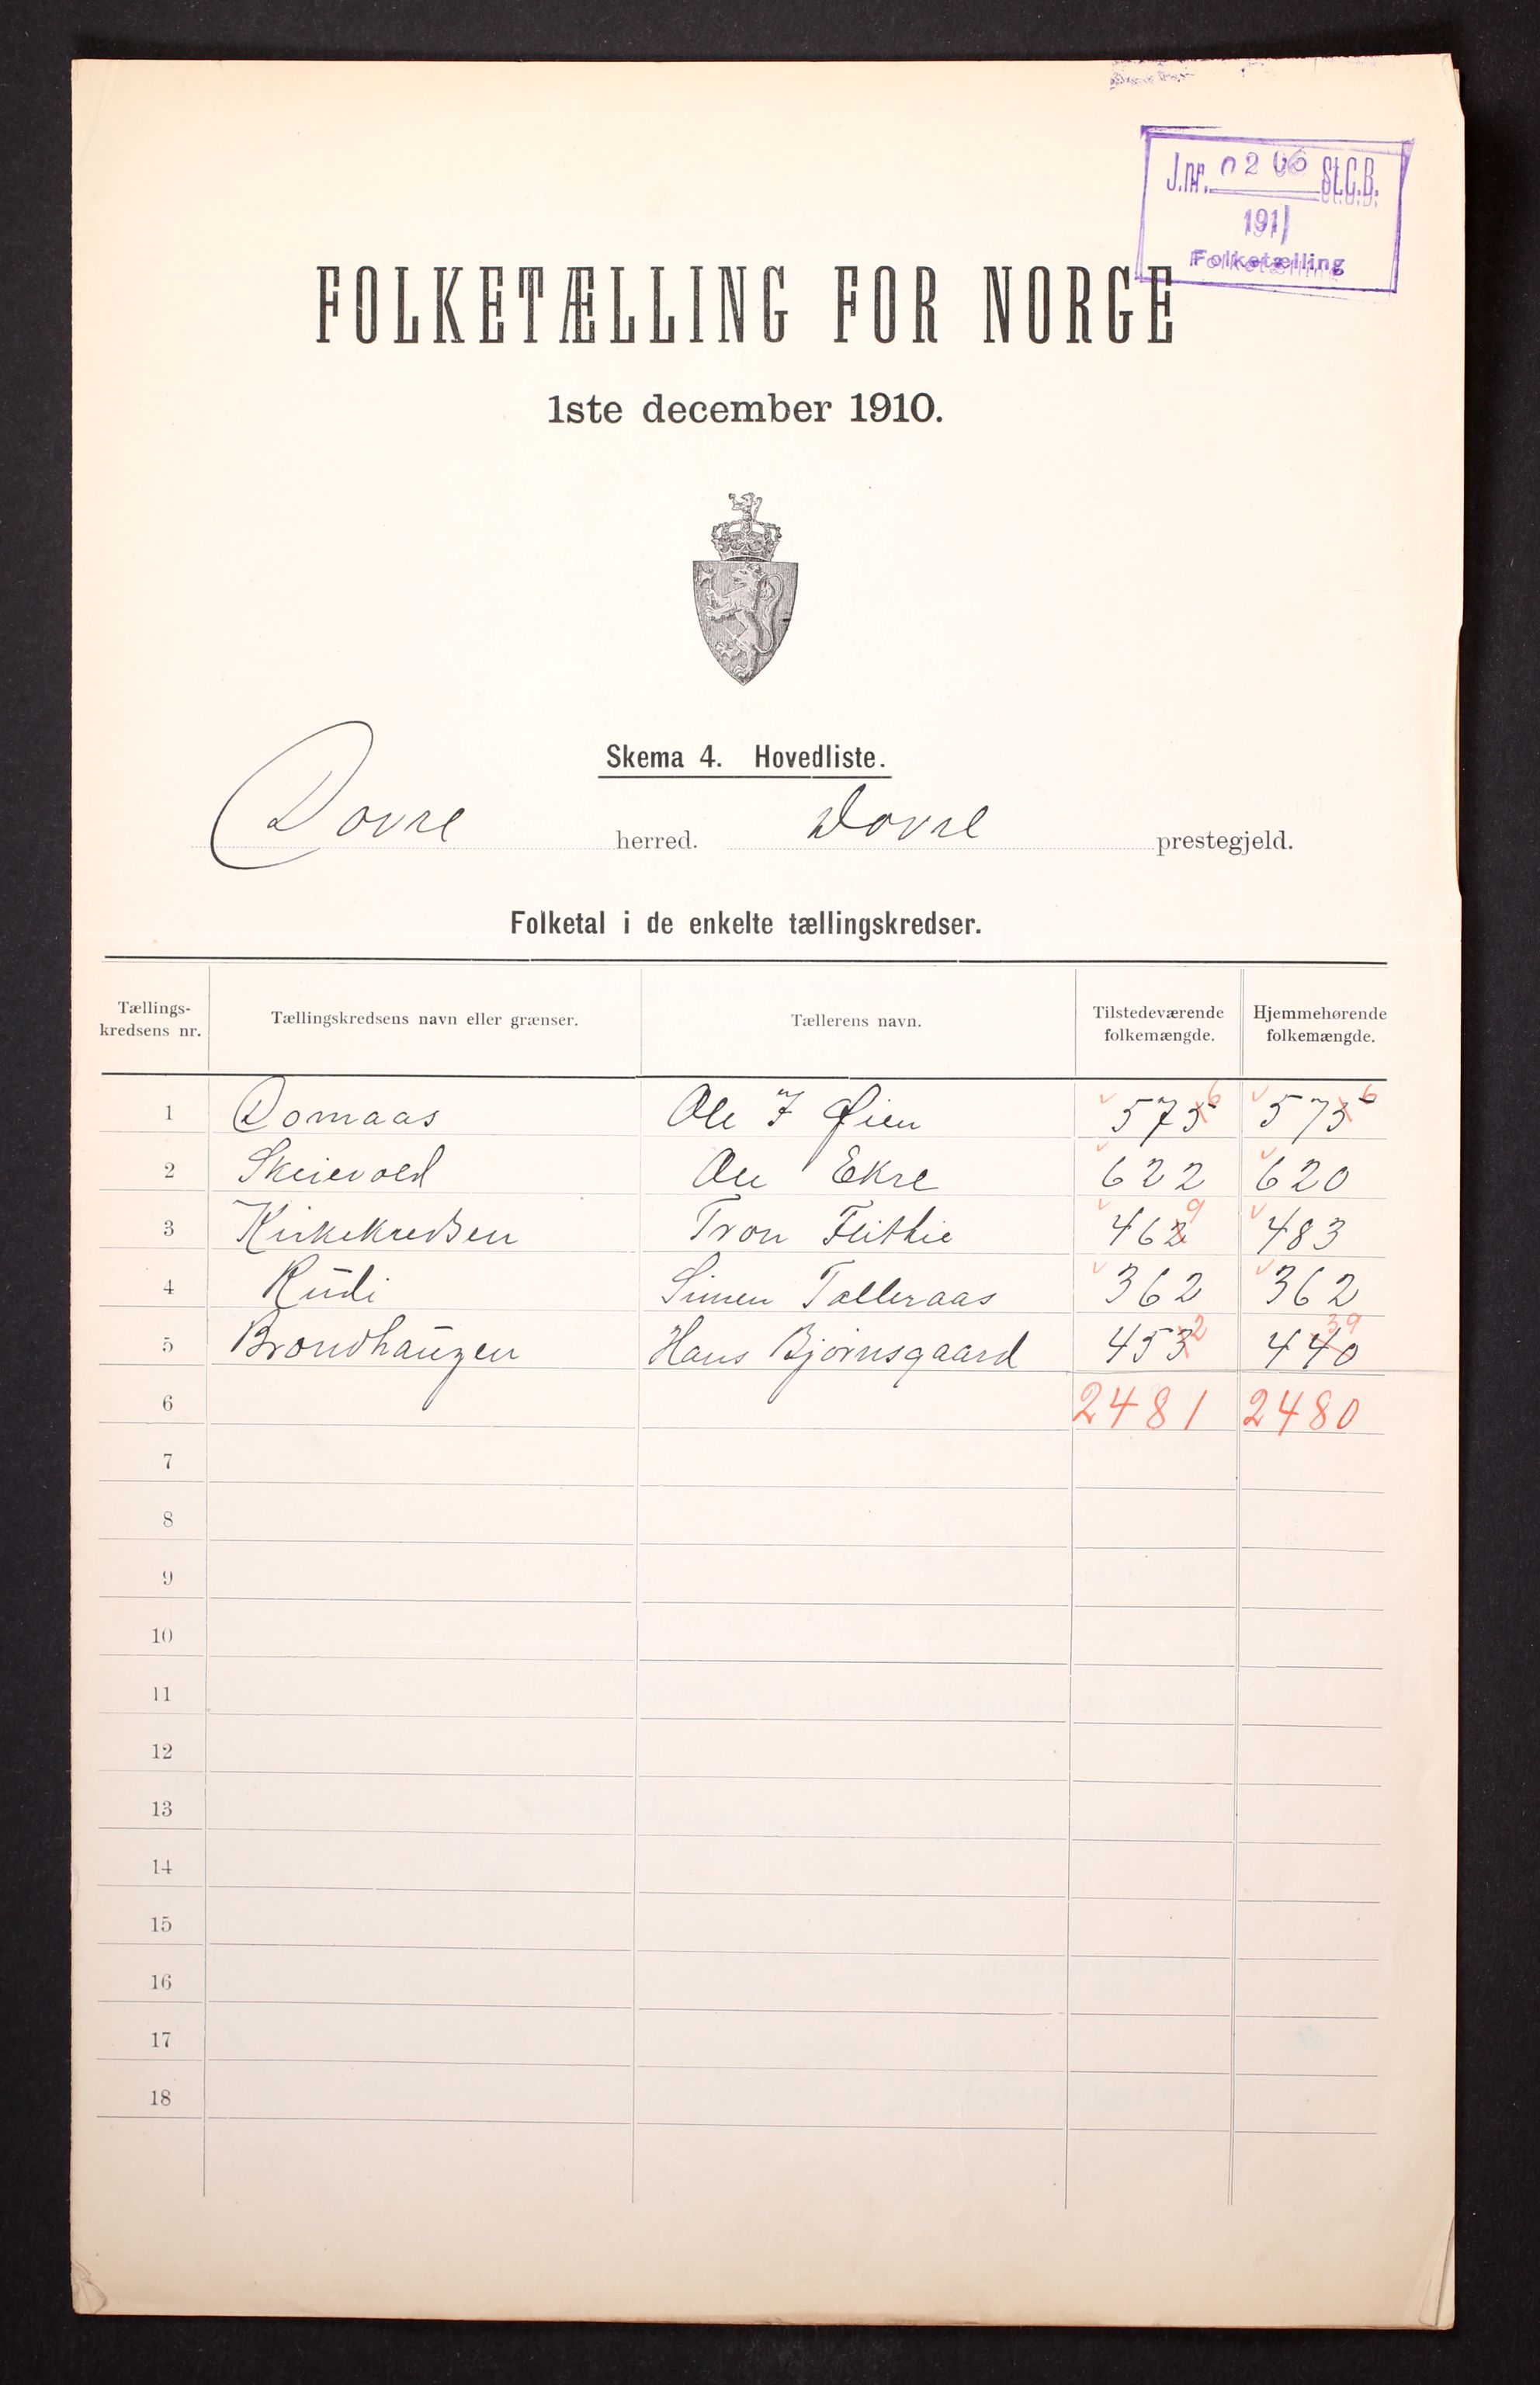 J.nr. 0206 St.C.B.
1911
Folketælling
FOLKETÆLLING FOR NORGE
1ste december 1910.
Skema 4. Hovedliste.
Dovre herred. Dovre prestegjeld.
Folketal i de enkelte tællingskredser.
Tællings-kredsens nr. Tællingskredsens navn eller grænser. Tællerens navn. Tilstedeværende folkemængde. Hjemmehørende folkemængde.
1 Domaas Ole J Øien 575 6 575 6
2 Skeievold Ole Ekre 622 620
3 Kirkekredsen Tron Flittie 462 9 483
4 Rudi Simen Talleraas 362 362
5 Brondhaugen Hans Bjørnsgaard 453 2 440 39
6 2481 2480
7
8
9
10
11
12
13
14
15
16
17
18